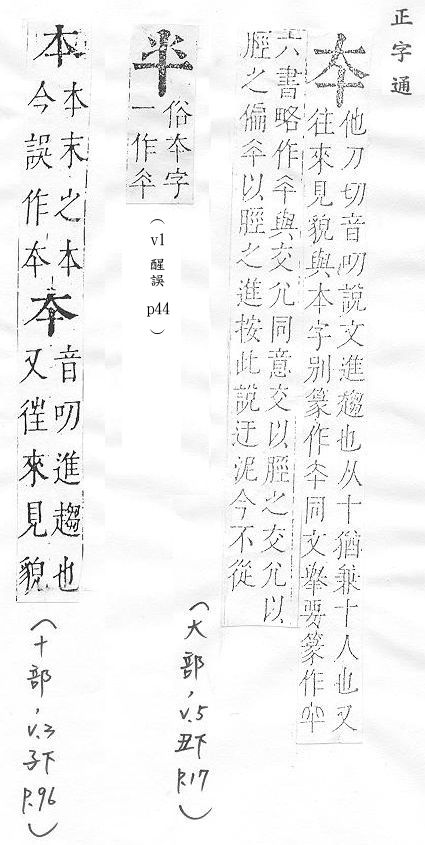 正字通
夲
他刀切音叨說文進趨也从十猶兼十人也又
往來見貌與本字别篆作夲同文舉要篆作
六書略作夲與交尣同意交以脛之交尣以
脛之偏夲以脛之進按此說迂泥今不從
(大部,v.5
丑下
p.17)
俗夲字
一作
(v1
醒誤
p44)
本
本末之本
今誤作夲
夲
音叨進趨也
又往來見貌
(十部,v.3
子下
p.96)